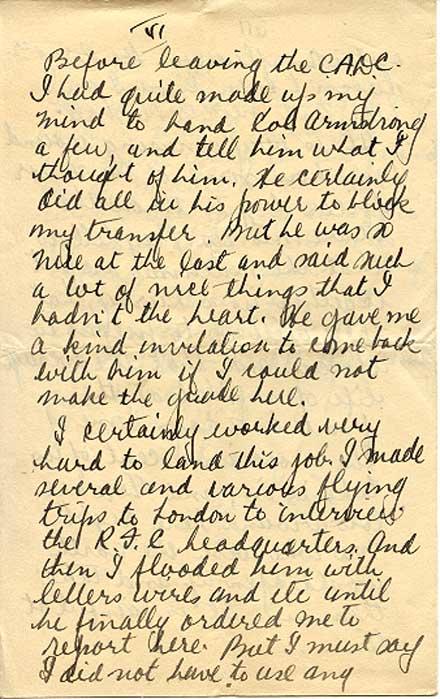 VI
Before leaving the C.A.D.C.
I had quite made up my
mind to hand Col Armstrong
a few, and tell him what I
thought of him. He certainly
did all in his power to block
my transfer. But he was so
nice at the last and said such
a lot of nice things that I
hadn't the heart. He gave me
a kind invitation to come back
with him if I could not
make the grade here.
I certainly worked very
hard to land this job. I made
several and various flying
trips to London to interview
the R.F.C headquarters. And
then I flooded him with
letters wires and etc until
he finally ordered me to
report here. But I must say
I did not have to use any